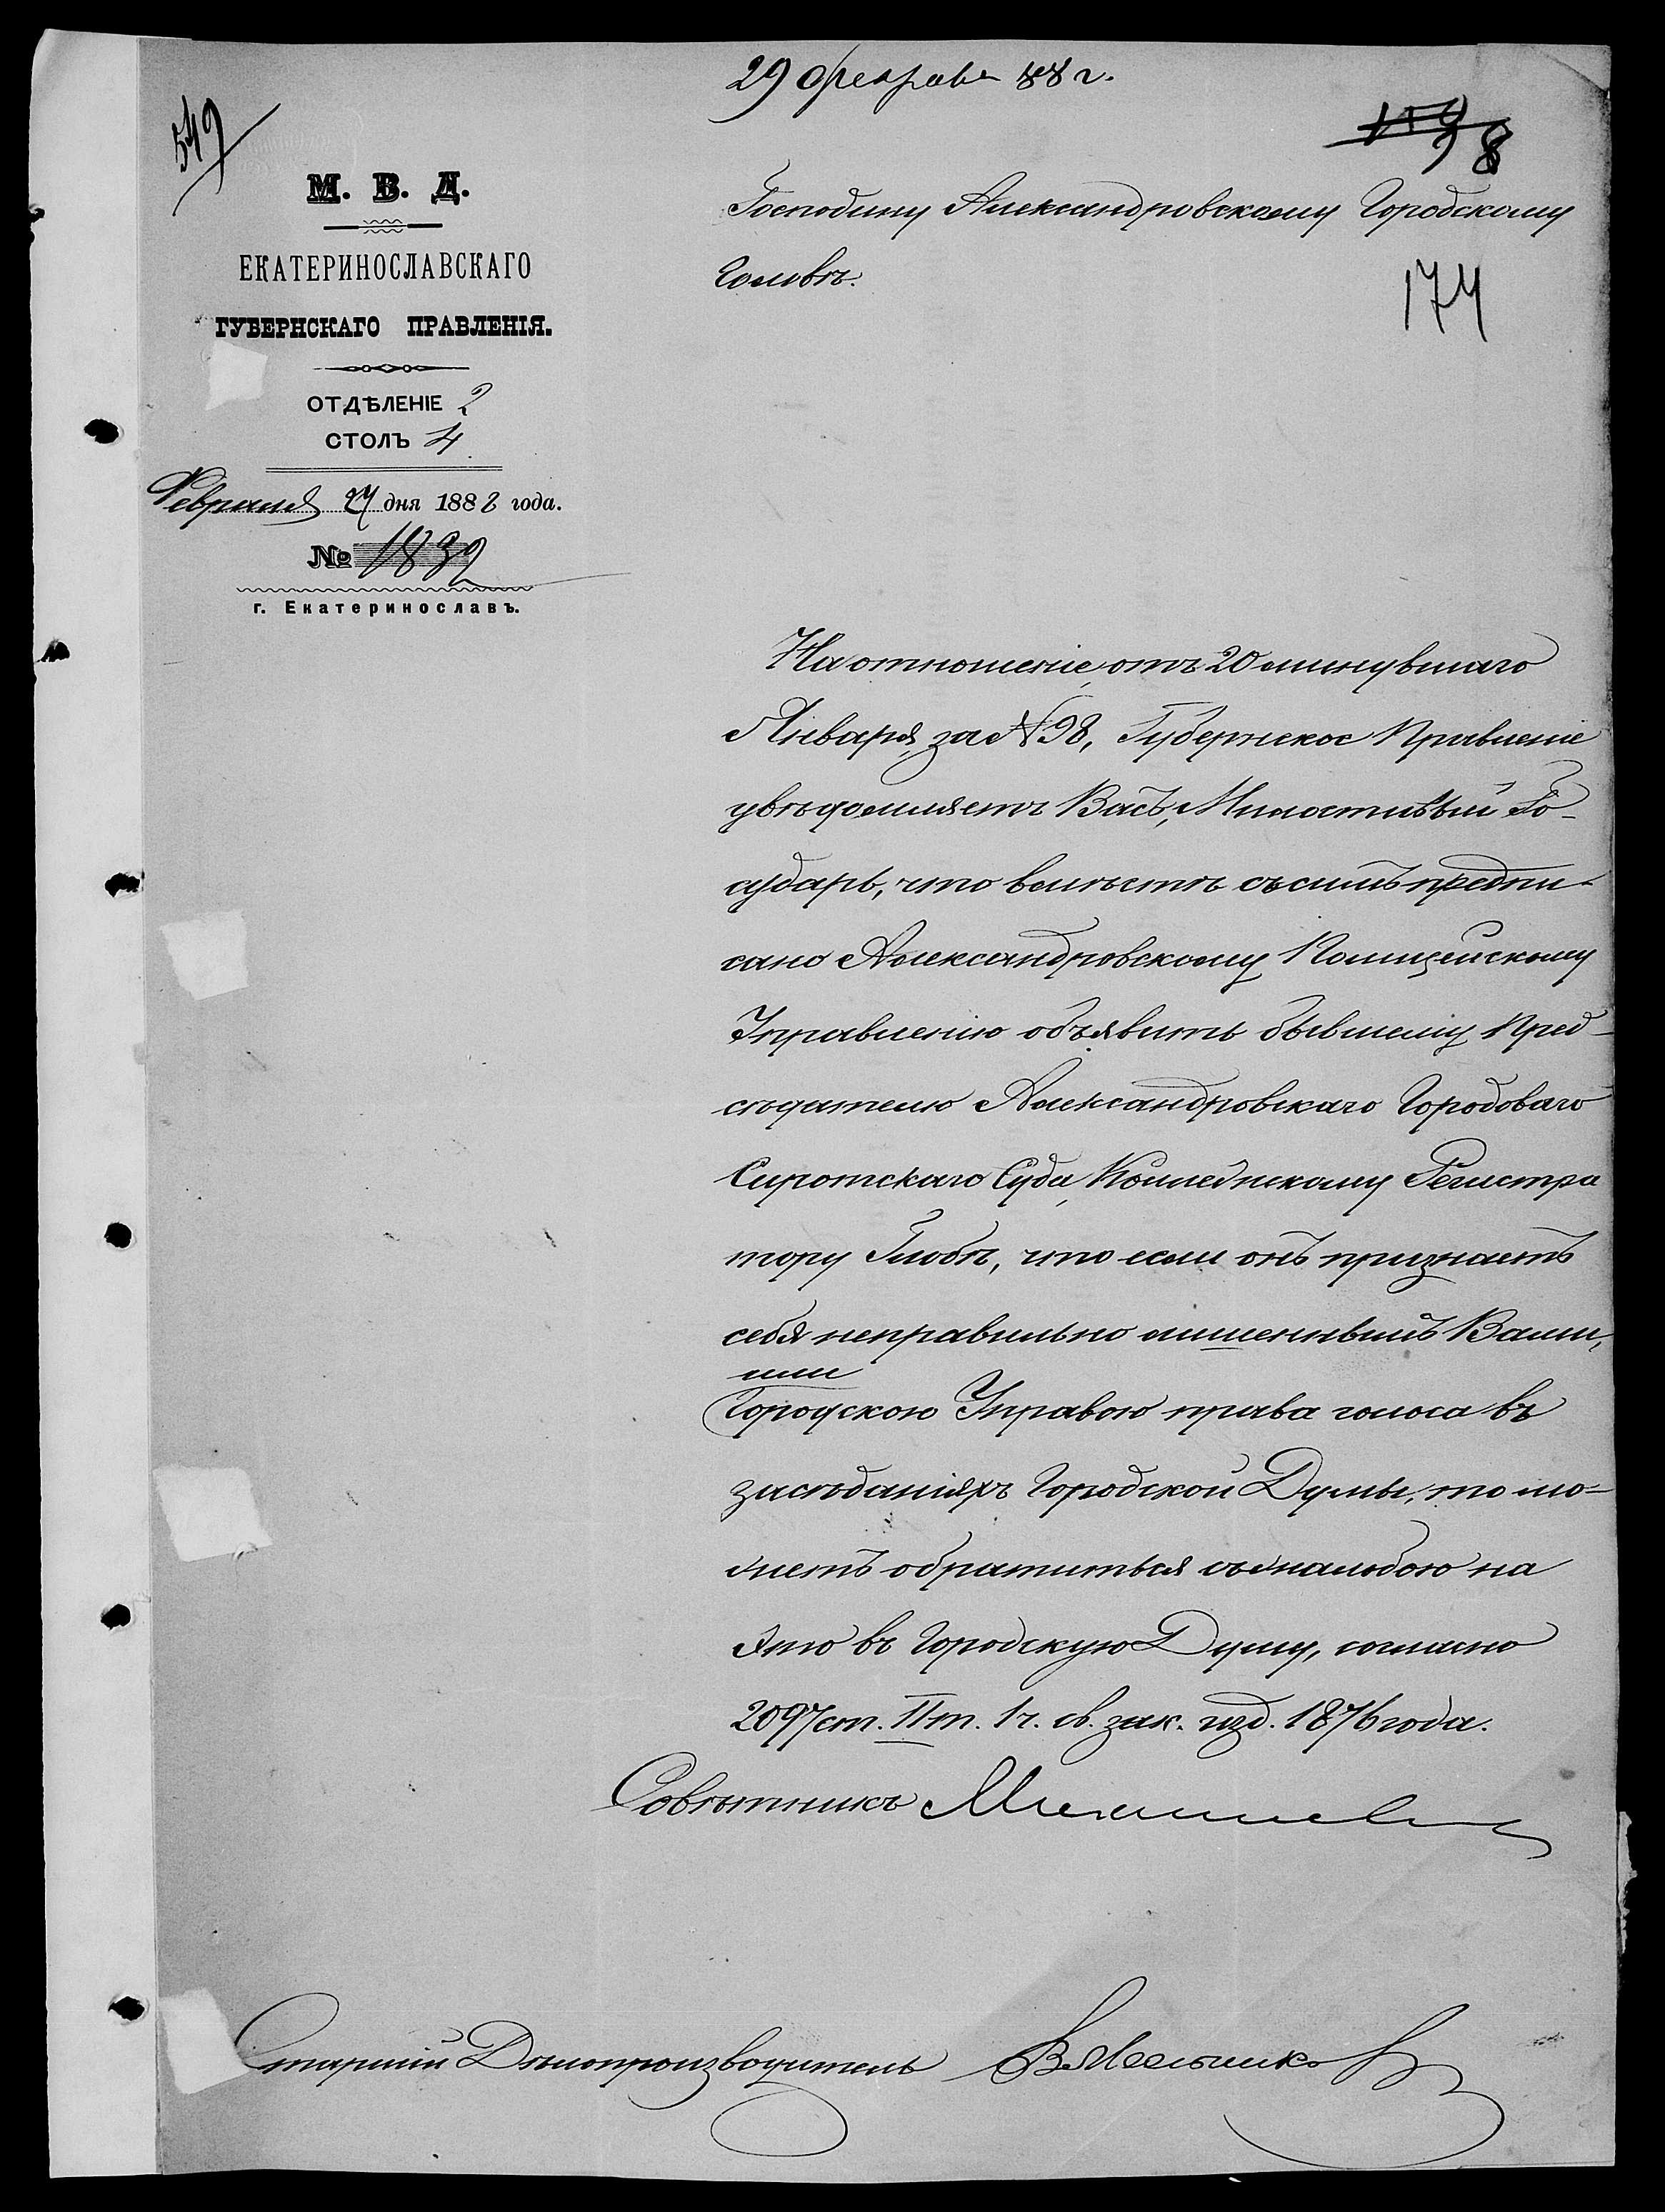 29 февраля 88 г.
549
8
М. В. Д.
ЕКАТЕРИНОСЛАВСКАГО
ГУБЕРНСКАГО ПРАВЛЕНІЯ.
ОТДѢЛЕНІЕ 2
СТОЛЪ 4
Февраля 27 дня 1888 года.
№ 1832
г. Екатеринославъ.
Господину Александровскому Городскому
Головѣ.
174
На отношеніе, отъ 20 минувшаго
Января, за № 98, Губернское Правленіе
увѣдомляетъ Васъ, Милостивый Го-
сударь, что вмѣстѣ съ симъ предпи-
сано Александровскому Полицейскому
Управленію объявить бывшему Пред-
сѣдателю Александровскаго Городоваго
Сиротскаго Суда, Коллежскому Регистра
тору Глобѣ, что если онъ признаетъ
себя неправильно лишеннымъ Вами,
или
Городскою Управою права голоса въ
засѣданіяхъ Городской Думы, то мо-
жетъ обратиться съ жалобою на
это въ Городскую Думу, согласно
2097 ст. II т. 1 ч. св. зак. изд. 1876 года.
Совѣтникъ
Старшій Дѣлопроизводитель